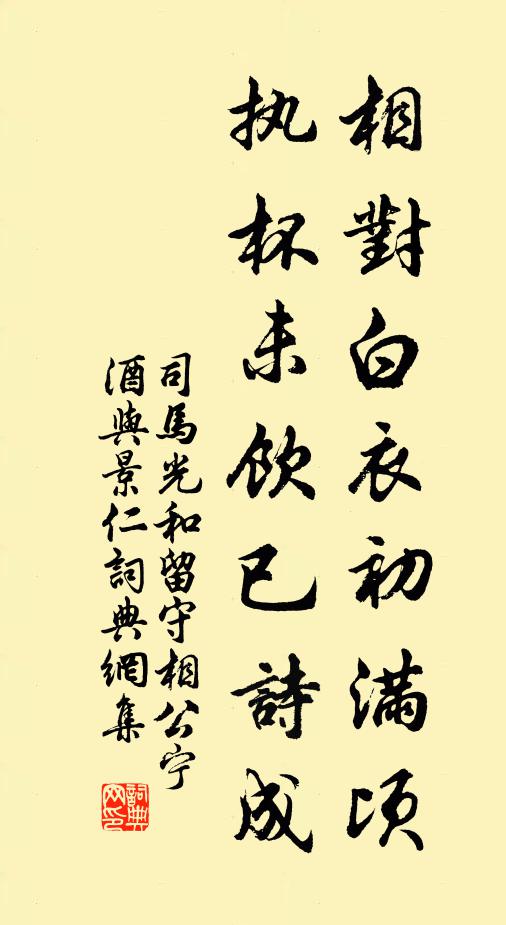 相對白衣初滿頃
执杯未飲已詩成
司馬光和留守相公宁
酒與景仁詞典網集
詞典網印